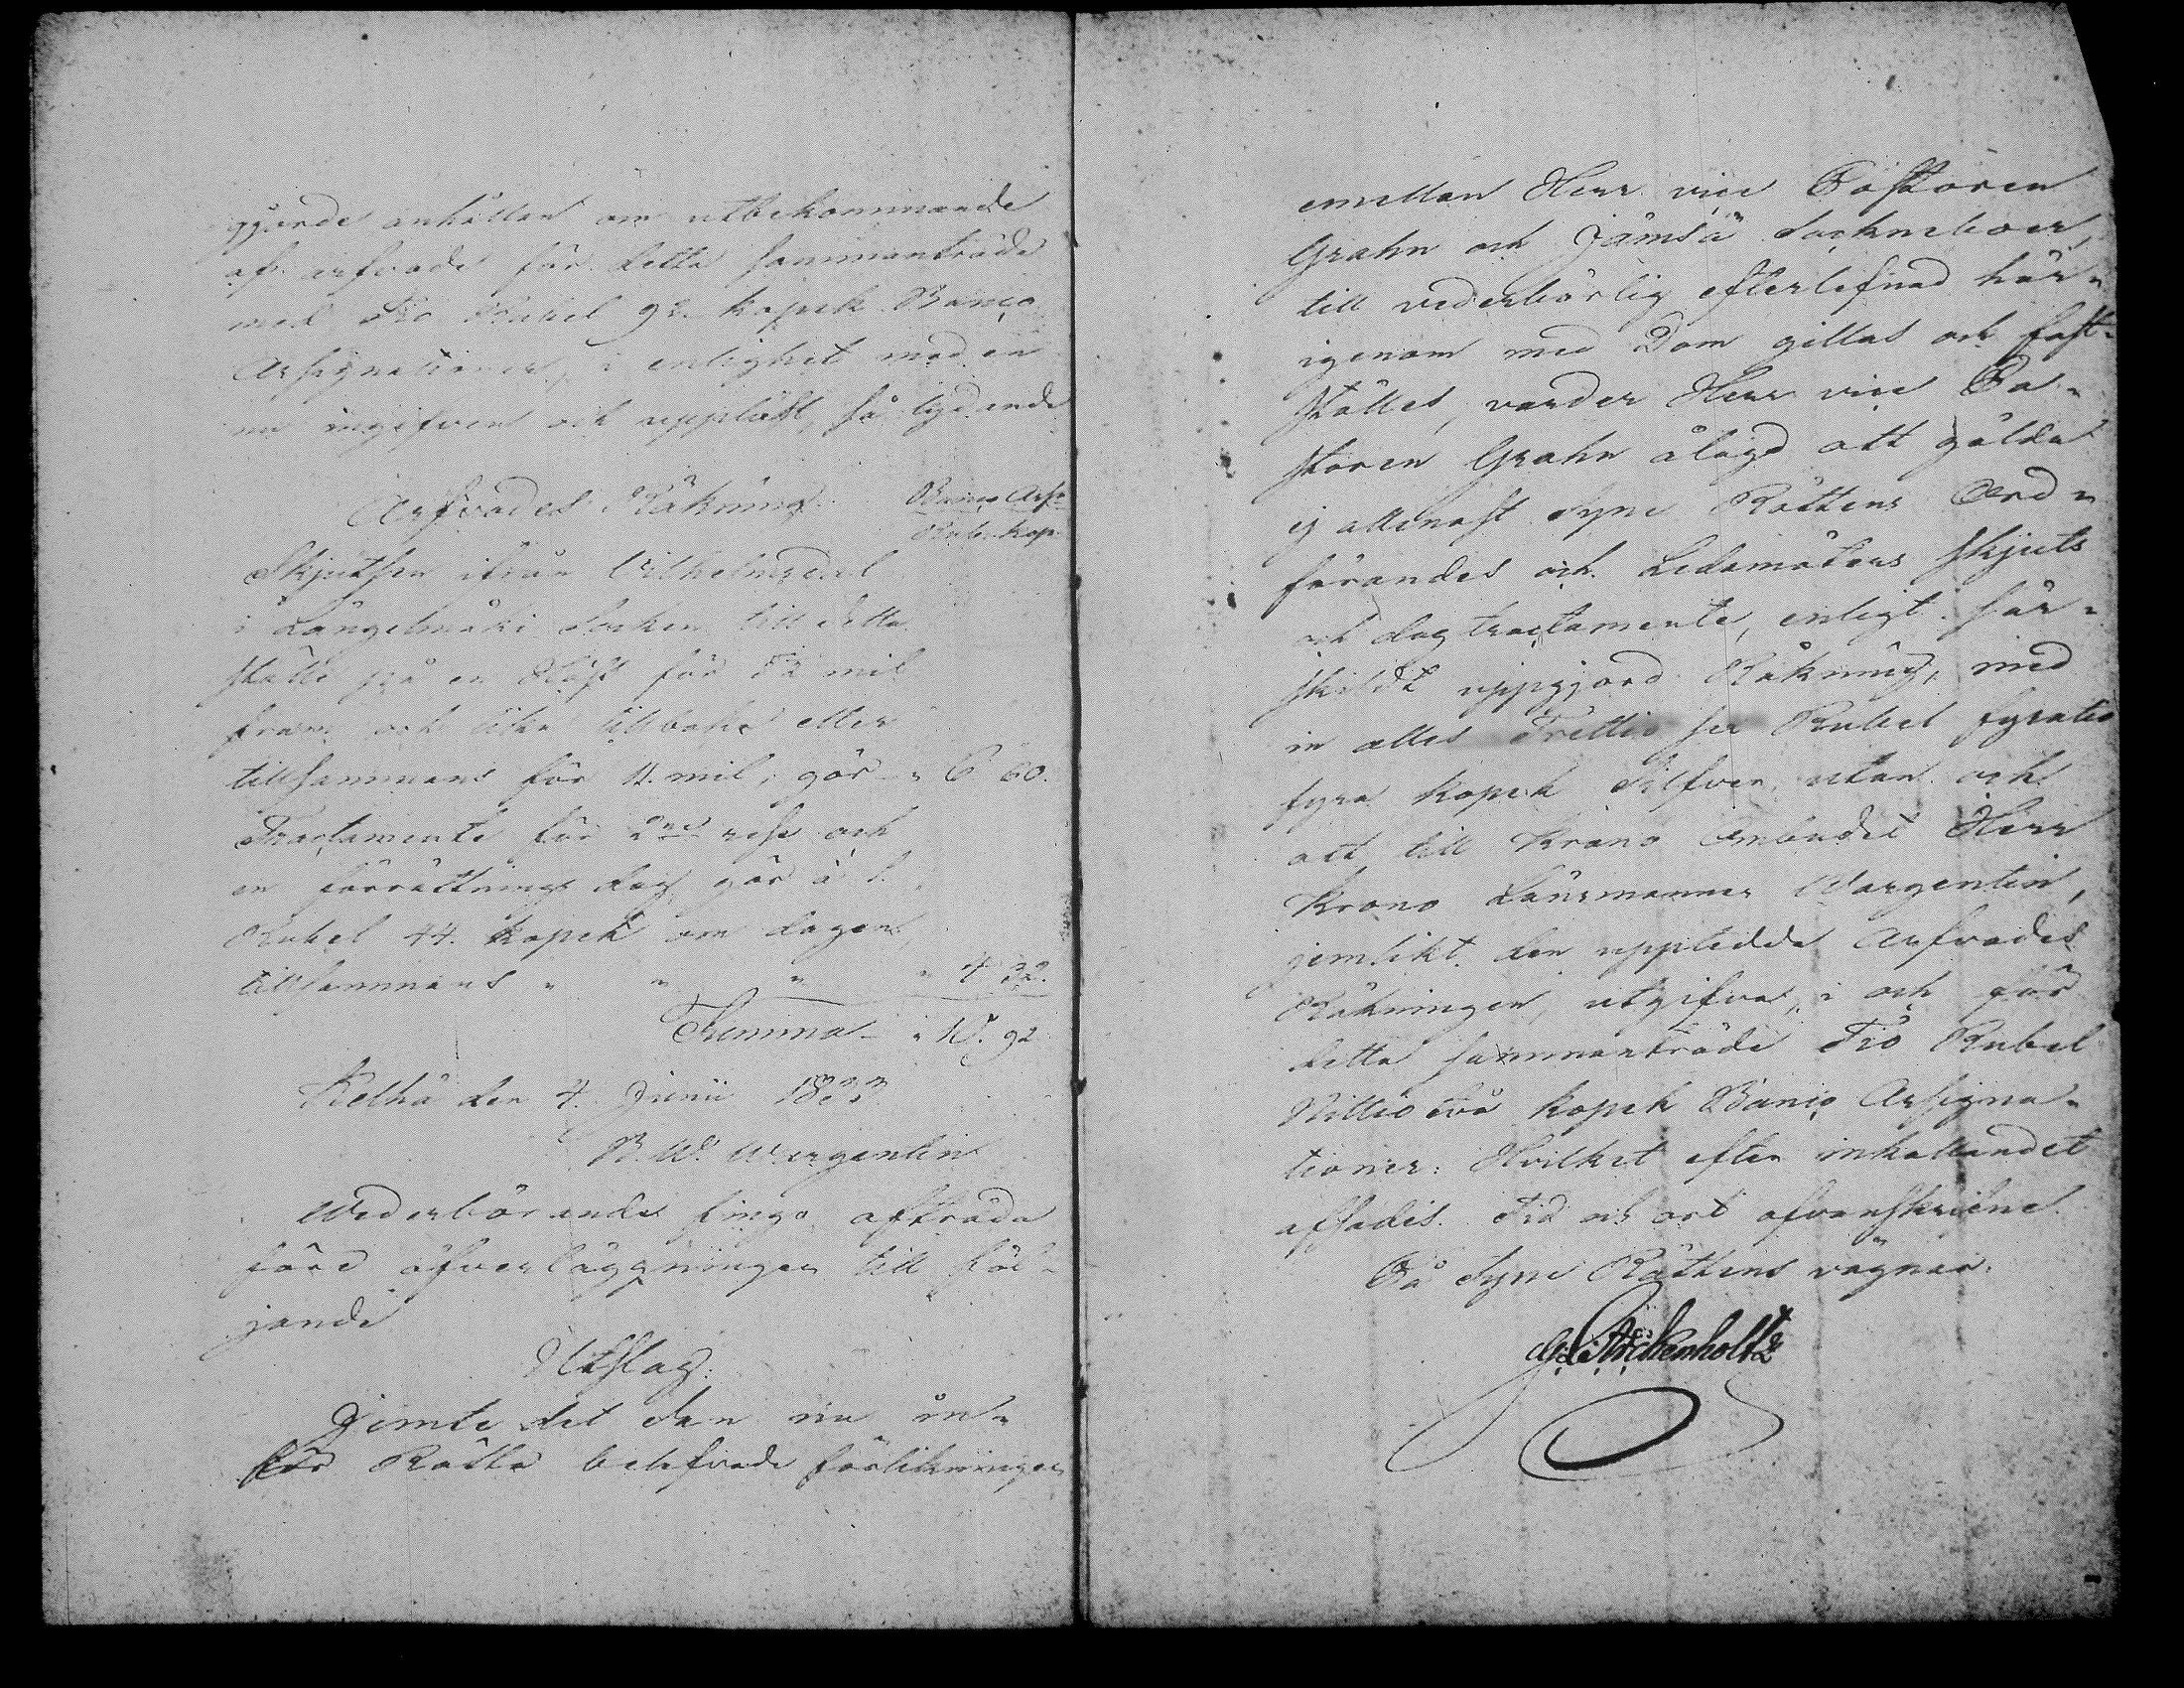 gjorde anhållan om utbekommande
af arfvode för detta sammanträde
med Tio Rubel 92 kopek Banco
Assignationer, i enlighet med en
nu ingifven och uppläst, så lydande
Arfvodes Räkning. Banco Assr
Rub. kop.
Skjutsen ifrån Vilhelmsdal
i Längelmäki Socken till detta
ställe på en Häst för 5½ mil
fram och lika tillbaka eller
tillsammans för 11. mil, gör " 6 60.
Tractamente för 2ne rese och
en förrättnings dag, gör à 1.
Rubel 44. kopek om dagen,
tillsammans " " " " 4 32.
Summa " 10. 92
Kelhä den 4. Junii 1833.
B. W. Wargentin
Wederbörande fingo afträda
före öfverläggningen till föl-
jande
Utslag:
Jemte det den nu in-
för Rätta belefvade förlikningen
emellan Herr vice Pastoren
Grahn och Jämsä Sockneboer,
till vederbörlig efterlefnad här-
igenom med Dom gillas och fast-
ställes, varder Herr vice Pa-
storen Grahn ålagd att gälda
ej allenast Syne Rättens Ord-
förandes och Ledamöters skjuts
och dagtractamente, enligt sär-
skildt uppgjord Räkning, med
in alles Trettio sex Rubel fyratio
fyra kopek Silfver, utan och
att till Krono Ombudet Herr
Krono Länsmannen Wargentin,
jemlikt den uppledde Arfvodes
Räkningen, utgifva, i och för
detta sammanträde Tio Rubel
Nittiotvå kopek Banco Assigna-
tioner: Hvilket efter inkallandet
afsades. Tid och ort ofvanskrifne.
På Syne Rättens vägnar:
G: L: Stichenholtz